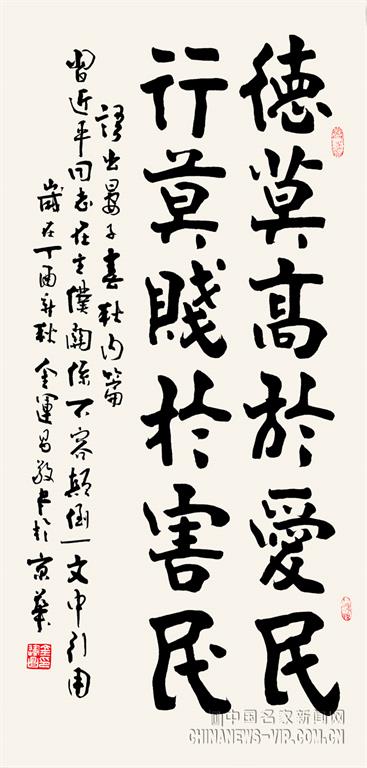 德莫高於愛民
行莫賤於害民
語出晏子春秋内篇
習近平同志在主僕關係不容顛倒一文中引用
歲在丁酉新秋金運昌敬書於京華
中国名家新闻网
CHINANEWS-VIP.COM.CN